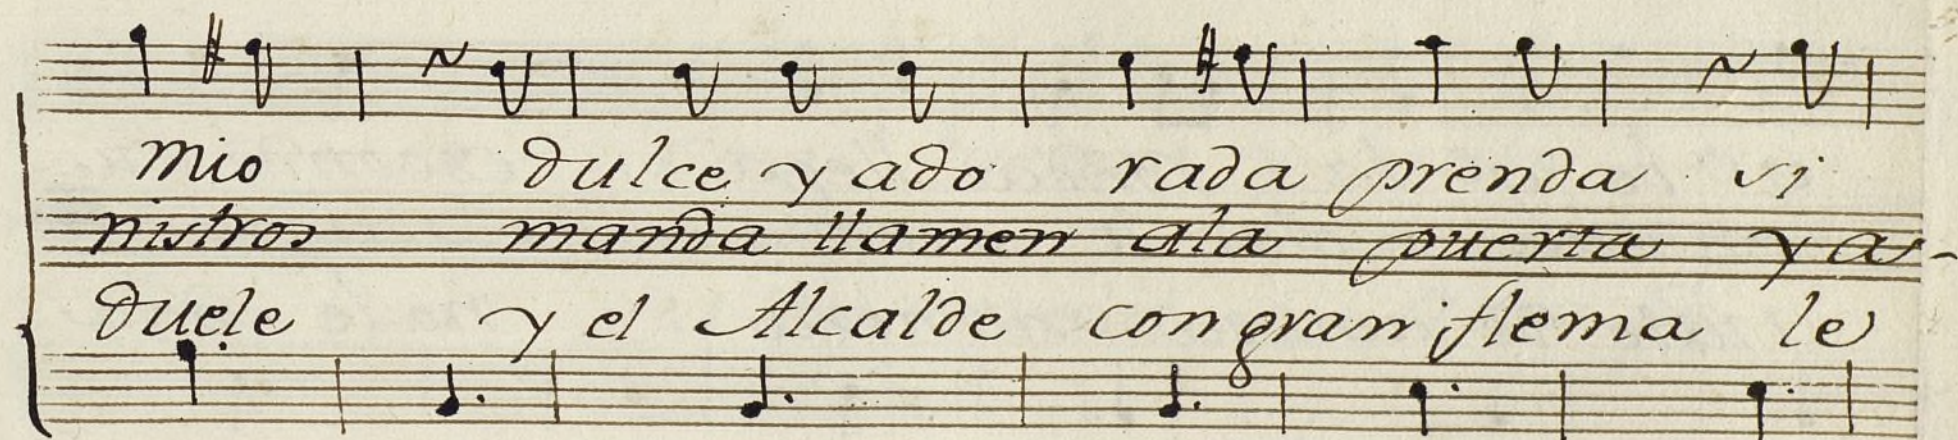 mio dulce y ado rada prenda vi
nistros manda llamen ala puerta y a
duele y el Alcalde con gran flema le